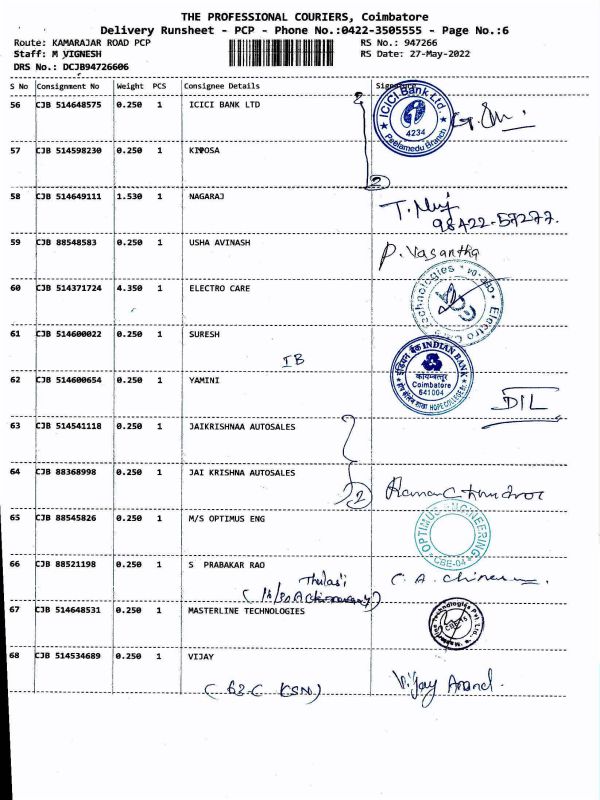 THE PROFESSIONAL COURIERS, Coimbatore
Delivery Runsheet - PCP - Phone No.:0422-3505555 - Page No.:6
Route: KAMARAJAR ROAD PCP RS No.: 947266
Staff: M VIGNESH RS Date: 27-May-2022
DRS No.: DCJB94726606
S No Consignment No Weight PCS Consignee Details Signature
56 CJB 514648575 0.250 1 ICICI BANK LTD
ICICI Bank Ltd. 4234 Peelamedu Branch
57 CJB 514598230 0.250 1
2
58 CJB 514649111 1.530 1 NAGARAJ
98422-57277.
59 CJB 88548583 0.250 1 USHA AVINASH P. Vasantha
60 CJB 514371724 4.350 1 ELECTRO CARE
61 CJB 514600022 0.250 1 SURESH
IB
इंडियन बैंक INDIAN BANK
कोयम्बत्तूर
Coimbatore
641004
HOPE COLLEGE
62 CJB 514600654 0.250 1 YAMINI
DIL
63 CJB 514541118 0.250 1 JAIKRISHNAA AUTOSALES
64 CJB 88368998 0.250 1 JAI KRISHNA AUTOSALES
2
65 CJB 88545826 0.250 1 M/S OPTIMUS ENG
OPTIMUS ENGINEERING CBE-04
66 CJB 88521198 0.250 1 S PRABAKAR RAO
Thulasi
67 CJB 514648531 0.250 1 MASTERLINE TECHNOLOGIES
68 CJB 514534689 0.250 1 VIJAY
Vijay Anand